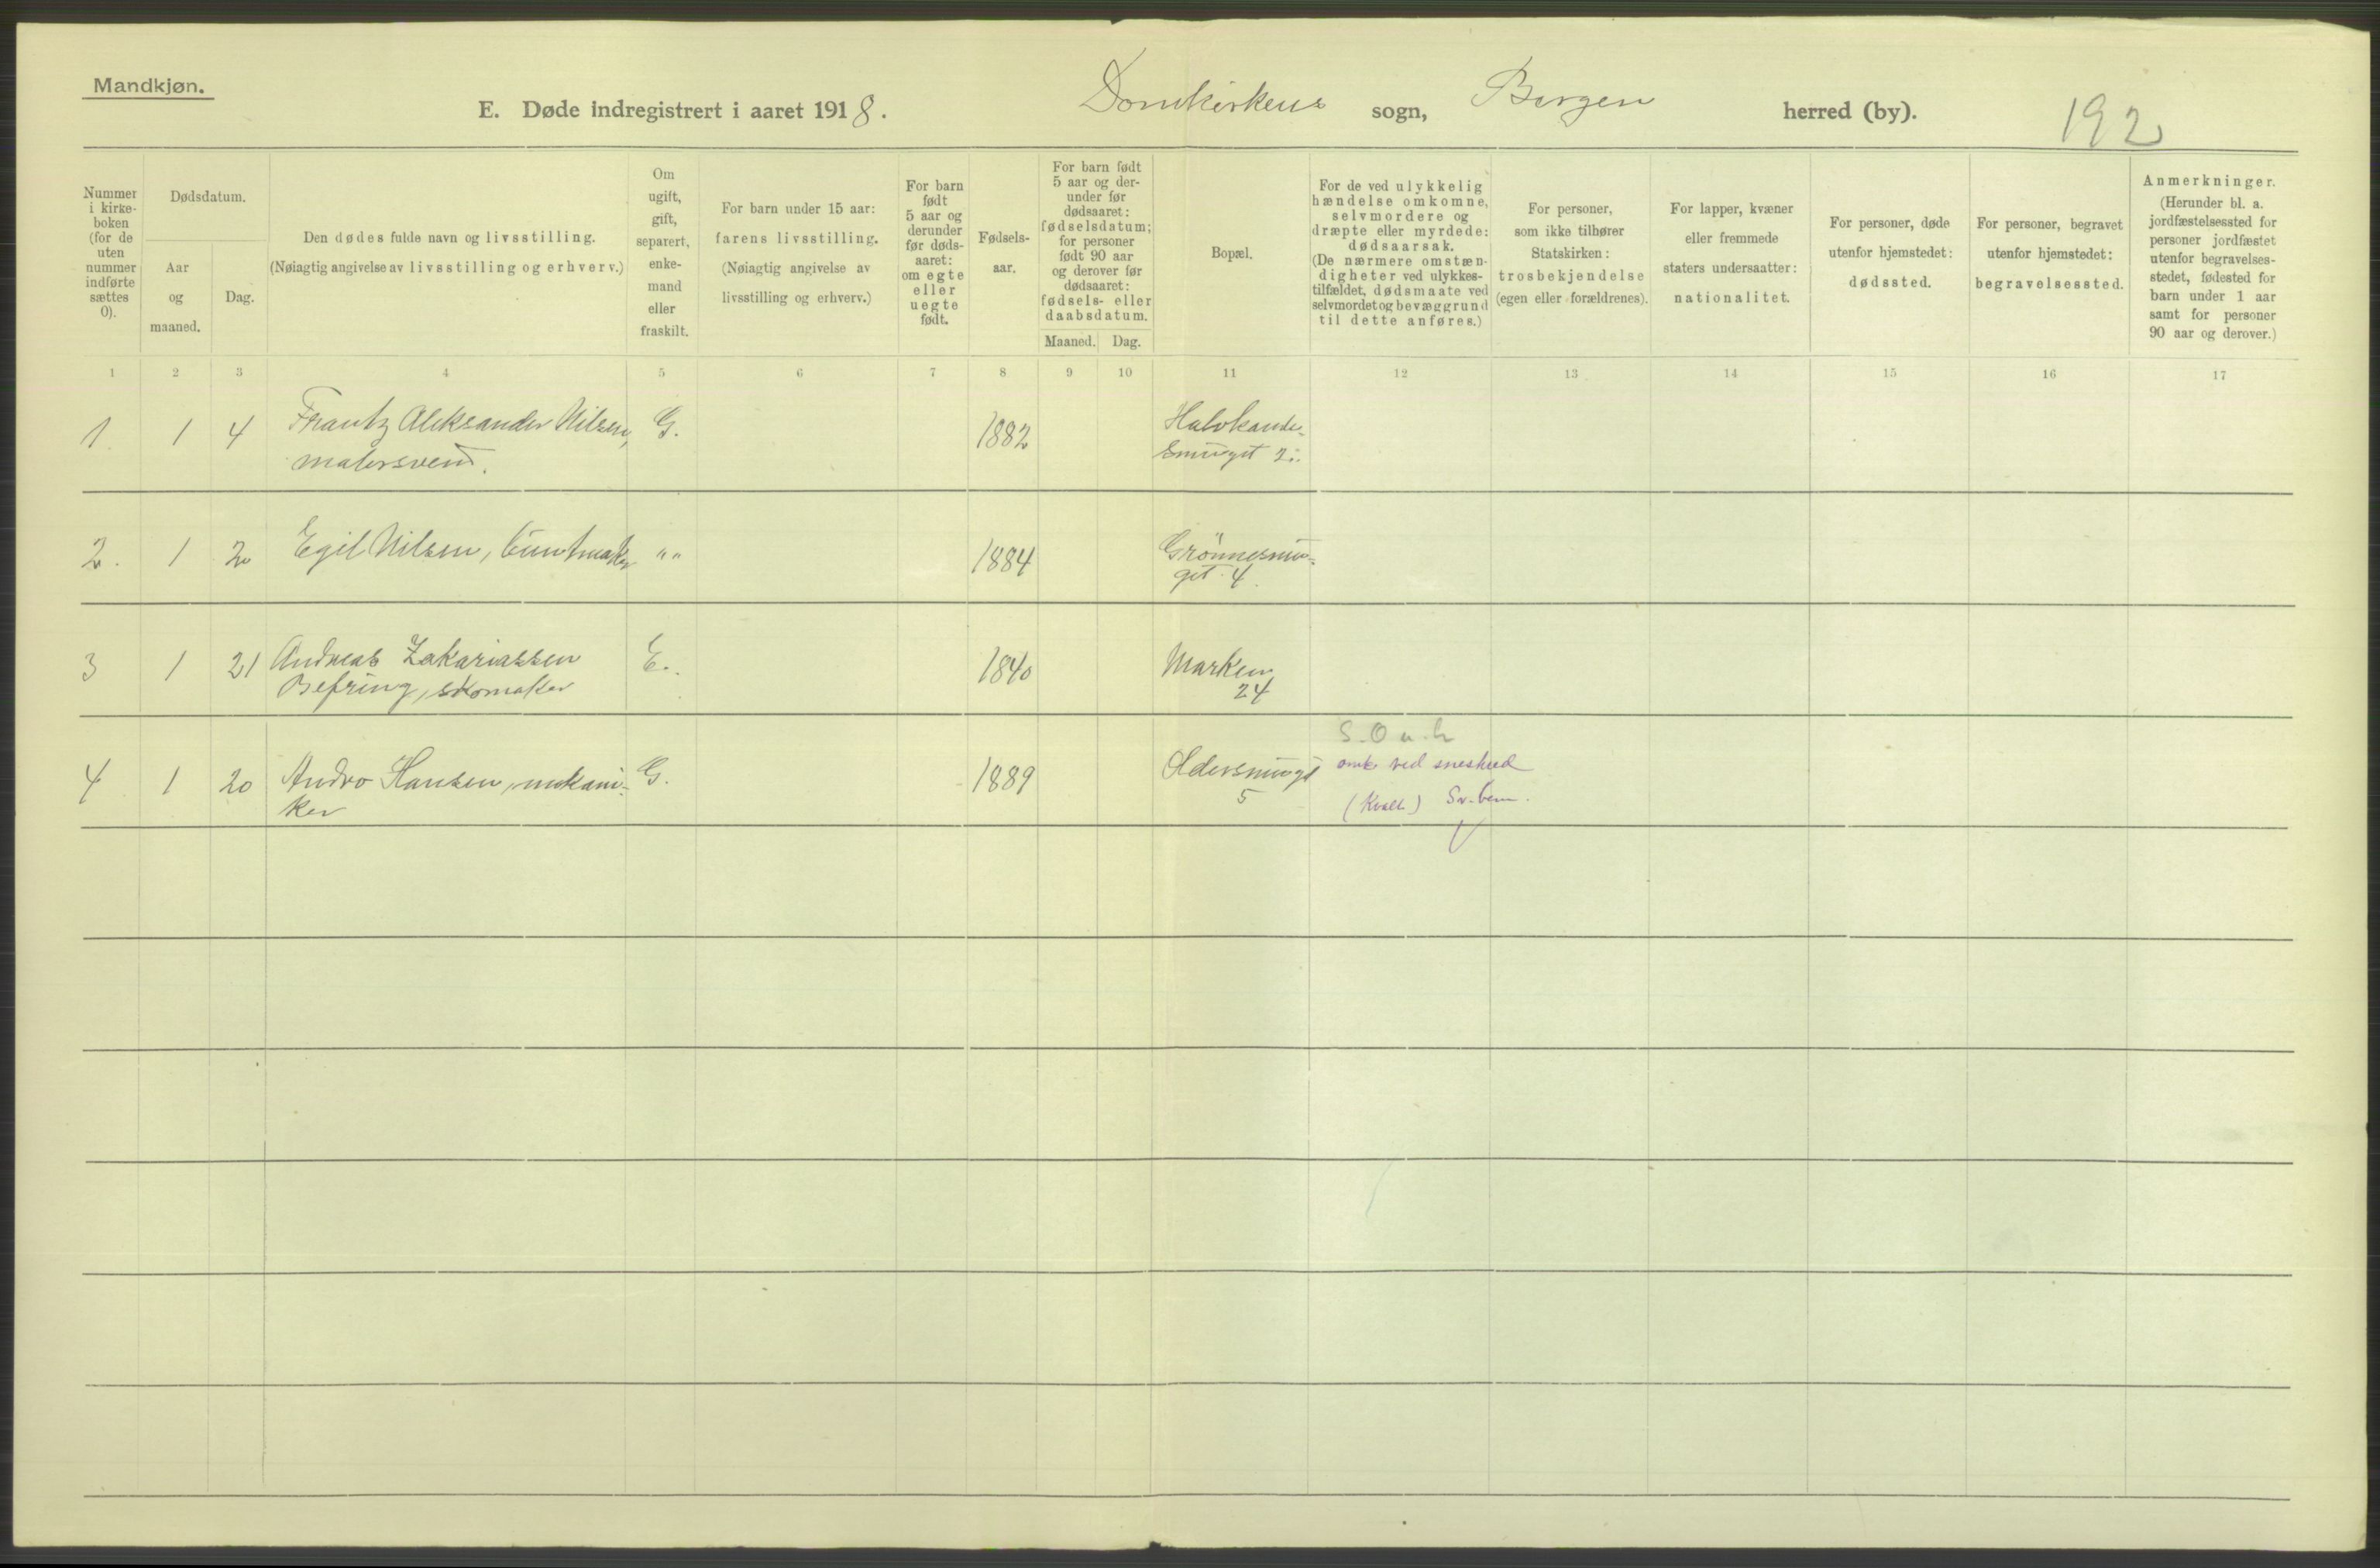 Mandkjøn.
E. Døde indregistrert i aaret 1918. Domkirkens sogn, Bergen herred (by). 192
Nummer i kirke-boken (for de uten nummer indførte sættes 0).
Dødsdatum.
Aar og maaned.
Dag.
Den dødes fulde navn og livsstilling.
(Nøiagtig angivelse av livsstilling og erhverv.)
Om ugift, gift, separert, enke-mand eller fraskilt.
For barn under 15 aar:
farens livsstilling.
(Nøiagtig angivelse av
livsstilling og erhverv.)
For barn født 5 aar og derunder før døds-aaret: om egte eller uegte født.
Fødsels-aar.
For barn født 5 aar og der-under før dødsaaret: fødselsdatum; for personer født 90 aar og derover før dødsaaret: fødsels- eller daabsdatum.
Maaned. Dag.
Bopæl.
For de ved ulykkelig hændelse omkomne, selvmordere og dræpte eller myrdede: dødsaarsak. (De nærmere omstæn-digheter ved ulykkes-tilfældet, dødsmaate ved selvmordet og bevæggrund til dette anføres.)
For personer, som ikke tilhører Statskirken: trosbekjendelse (egen eller forældrenes).
For lapper, kvæner eller fremmede staters undersaatter: nationalitet.
For personer, døde utenfor hjemstedet: dødssted.
For personer, begravet utenfor hjemstedet: begravelsessted.
Anmerkninger. (Herunder bl. a. jordfæstelsessted for personer jordfæstet utenfor begravelses-stedet, fødested for barn under 1 aar samt for personer 90 aar og derover.)
1 2 3 4 5 6 7 8 9 10 11 12 13 14 15 16 17
1 1 4 Frantz Aleksander Nilsen, G. 1882
malersvend.
smuget 2
2. 1 2 Egil Nilsen, buntmaker "" 1884 Grønnesmu-
get 4.
3 1 21 Andreas Zakariassen E. 1840 Marken
Befring, skomaker 24
4 1 20 Andro Hansen, mekani- G. 1889 Oldersmuget
ker 5
omk. ved sneskred
(Kvalt)